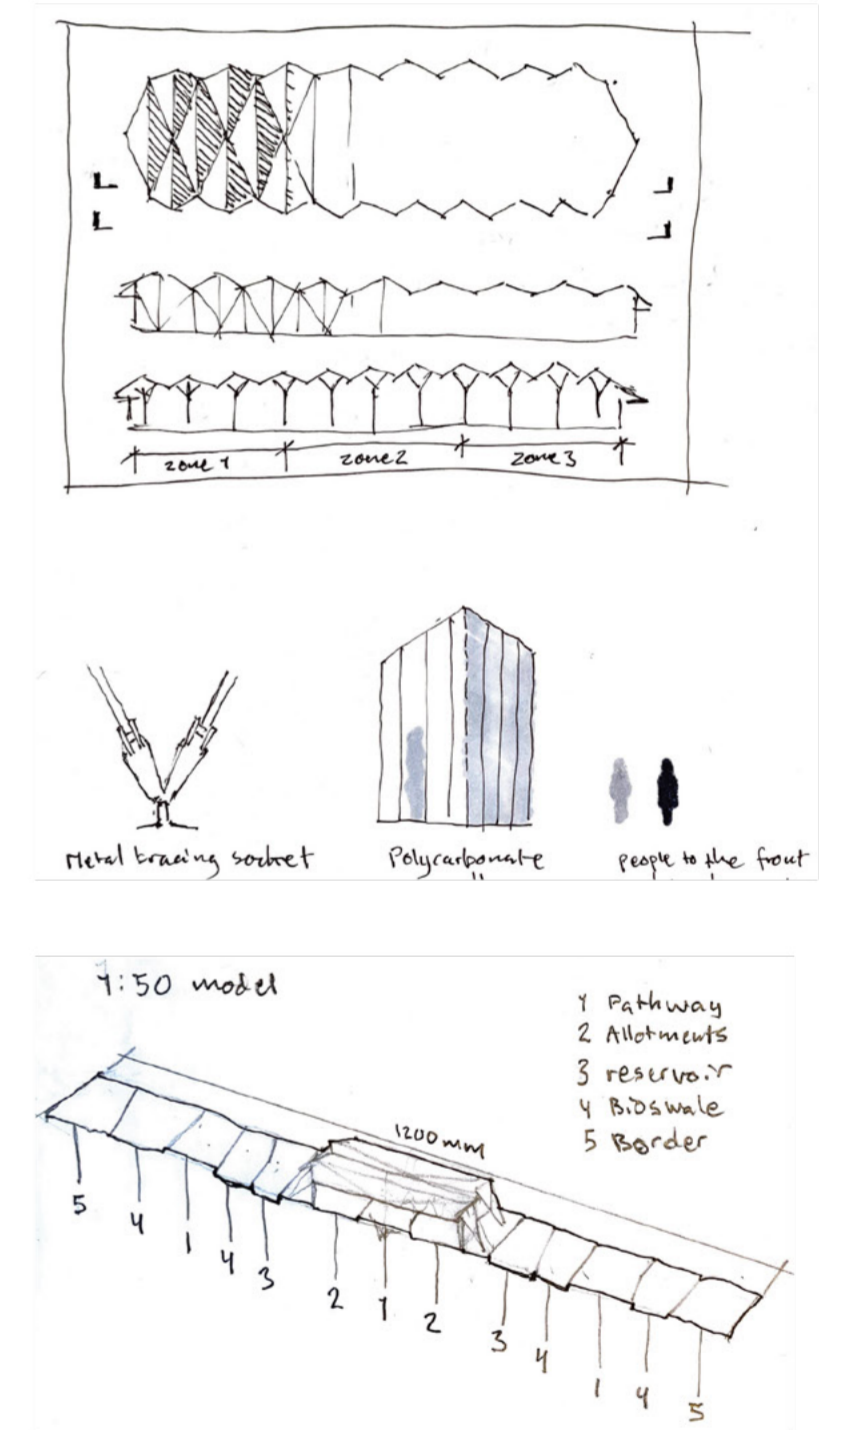 zone 1
zone 2
zone 3
Metal bracing socket
Polycarbonate
people to the front
1:50 model
1 Pathway
2 Allotments
3 reservoir
4 Bioswale
5 Border
1200mm
5
4
1
4
3
2
1
2
3
4
1
4
5